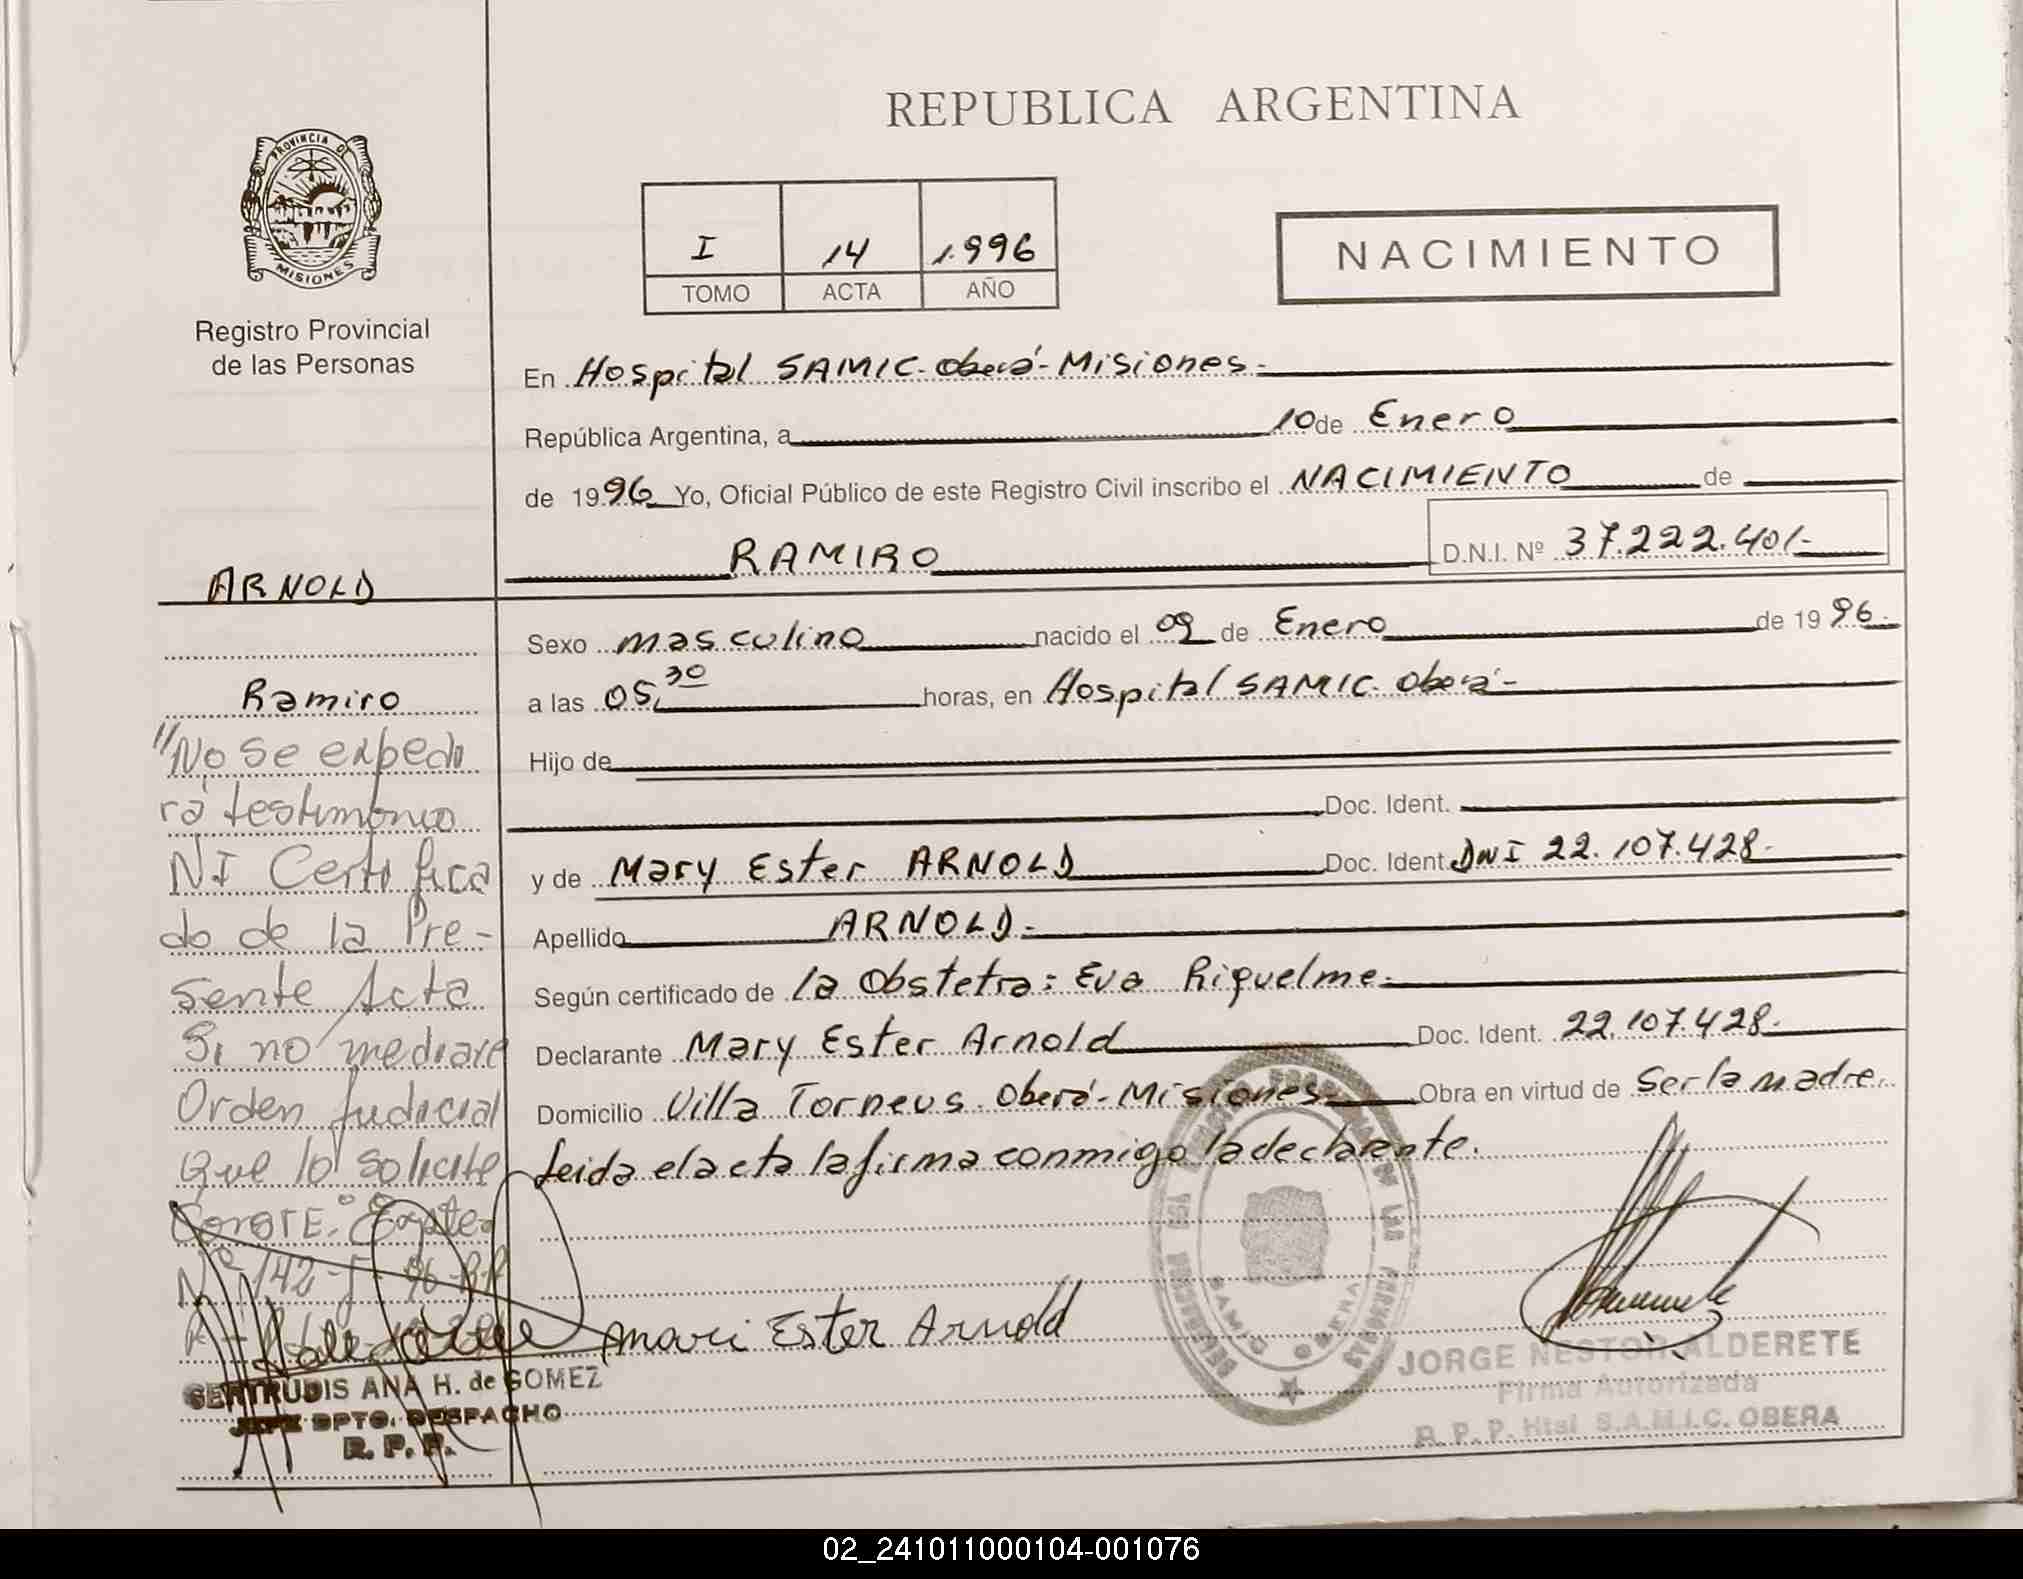 REPUBLICA ARGENTINA
PROVINCIA DE
MISIONES
Registro Provincial
de las Personas
I 14 1.996
TOMO ACTA AÑO
NACIMIENTO
En Hospital SAMIC-Oberá-Misiones.-
República Argentina, a 10 de Enero
de 1996 Yo, Oficial Público de este Registro Civil inscribo el NACIMIENTO de
RAMIRO D.N.I. Nº 37.222.401-
ARNOLD
Ramiro
"No se expedi
rá testimonio
NI Certifica
do de la Pre-
sente Acta
Si no mediare
Orden Judicial
Que lo solicite
Conste. Expte.
Nº 142-J-96-
Sexo masculino nacido el 09 de Enero de 1996.
a las 05,30 horas, en Hospital SAMIC. Oberá-
Hijo de
Doc. Ident.
y de Mary Ester ARNOLD Doc. Ident. DNI 22.107.428-
Apellido ARNOLD.-
Según certificado de la Obstetra: Eva Riquelme.-
Declarante Mary Ester Arnold Doc. Ident. 22.107.428-
Domicilio Villa Torneus. Oberá-Misiones- Obra en virtud de Ser la madre.
Leida el acta la firma conmigo la declarante.
Mari Ester Arnold
GERTRUDIS ANA H. de GOMEZ
JEFE DPTO. DESPACHO
R. P. P.
SAMIC OBERA
JORGE NESTOR ALDERETE
Firma Autorizada
R. P. P. Htal S.A.M.I.C. OBERA
02_241011000104-001076